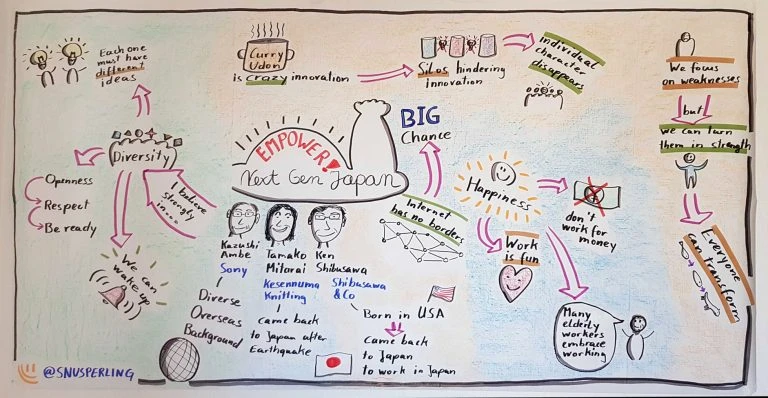 Each one
must have
different
ideas
Curry
Udon
is crazy innovation
Silos hindering
innovation
Individual
character
disappears
We focus
on weaknesses
but
we can turn
them in strength
Everyone
can transform
Diversity
Openness
Respect
Be ready
We can
wake up
I believe
strongly
in...
EMPOWER!
Next Gen Japan
BIG
Chance
Internet
has no borders
Happiness
don't
work for
money
Work
is fun
Many
elderly
workers
embrace
working
Kazushi
Ambe
Sony
Diverse
Overseas
Background
Tamako
Mitarai
Kesennuma
Knitting
came back
to Japan after
Earthquake
Ken
Shibusawa
Shibusawa
& Co
Born in USA
came back
to Japan
to work in Japan
@SNUSPERLING